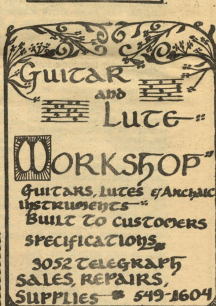 Guitar
and
Lute
Workshop
Guitars, Lutes & Archaic
instruments
Built to customers
specifications
3052 Telegraph
Sales, Repairs,
Supplies 549-1604